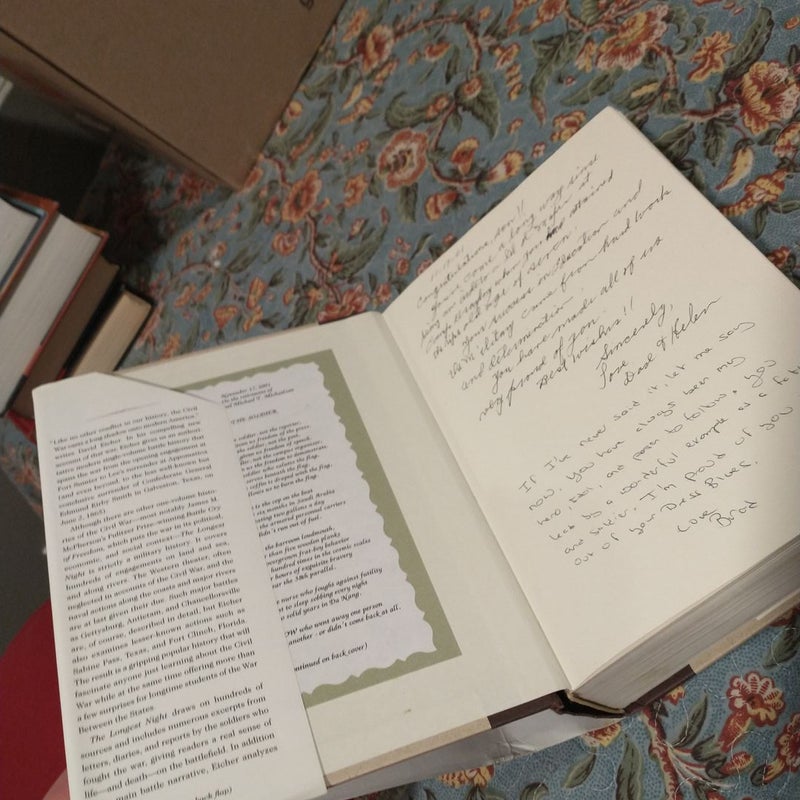 "Like no other conflict in our history, the Civil
War casts a long shadow onto modern America,"
writes David Eicher. In his compelling new
account of that war, Eicher gives us an authori-
tative modern single-volume battle history that
spans the war from the opening engagement at
Fort Sumter to Lee's surrender at Appomattox
(and even beyond, to the less well-known but
conclusive surrender of Confederate General
Edmund Kirby Smith in Galveston, Texas, on
June 2, 1865).
Although there are other one-volume histo-
ries of the Civil War—most notably James M.
McPherson's Pulitzer Prize-winning Battle Cry
of Freedom, which puts the war in its political,
economic, and social context—The Longest
Night is strictly a military history. It covers
hundreds of engagements on land and sea,
and along rivers. The Western theater, often
neglected in accounts of the Civil War, and the
naval actions along the coasts and major rivers
are at last given their due. Such major battles
as Gettysburg, Antietam, and Chancellorsville
are, of course, described in detail, but Eicher
also examines lesser-known actions such as
Sabine Pass, Texas, and Fort Clinch, Florida.
The result is a gripping popular history that will
fascinate anyone just learning about the Civil
War while at the same time offering more than
a few surprises for longtime students of the War
Between the States.
The Longest Night draws on hundreds of
sources and includes numerous excerpts from
letters, diaries, and reports by the soldiers who
fought the war, giving readers a real sense of
life—and death—on the battlefield. In addition
main battle narrative, Eicher analyzes
back flap)
November 17, 2001
On the retirement of
Michael T.
THE SOLDIER
soldier, not the reporter,
us freedom of the press.
soldier, not the poet,
freedom of speech.
not the campus organizer,
the freedom to demonstrate.
who salutes the flag,
serves beneath the flag,
coffin is draped with the flag,
to burn the flag.
is the cop on the beat
six months in Saudi Arabia
two gallons a day
the armored personnel carriers
didn't run out of fuel.
the barroom loudmouth,
than five wooden planks,
overgrown frat-boy behavior
hundred times in the cosmic scales
hours of exquisite bravery
near the 38th parallel.
nurse who fought against futility
to sleep sobbing every night
solid years in Da Nang.
POW who went away one person
another - or didn't come back at all.
(continued on back cover)
Congratulations, Son!!
You've come a long way since
being an
when you attained
the ripe old age of seven.
Your success in Education and
the Military came from hard work
and determination.
You have made all of us
very proud of you.
Best Wishes!!
Sincerely,
Love,
Dad & Helen
If I've never said it, let me say
now. You have always been my
hero, one person to follow. You
a wonderful example as a
and I'm proud of you
out of your Dress Blues.
Love
Brad